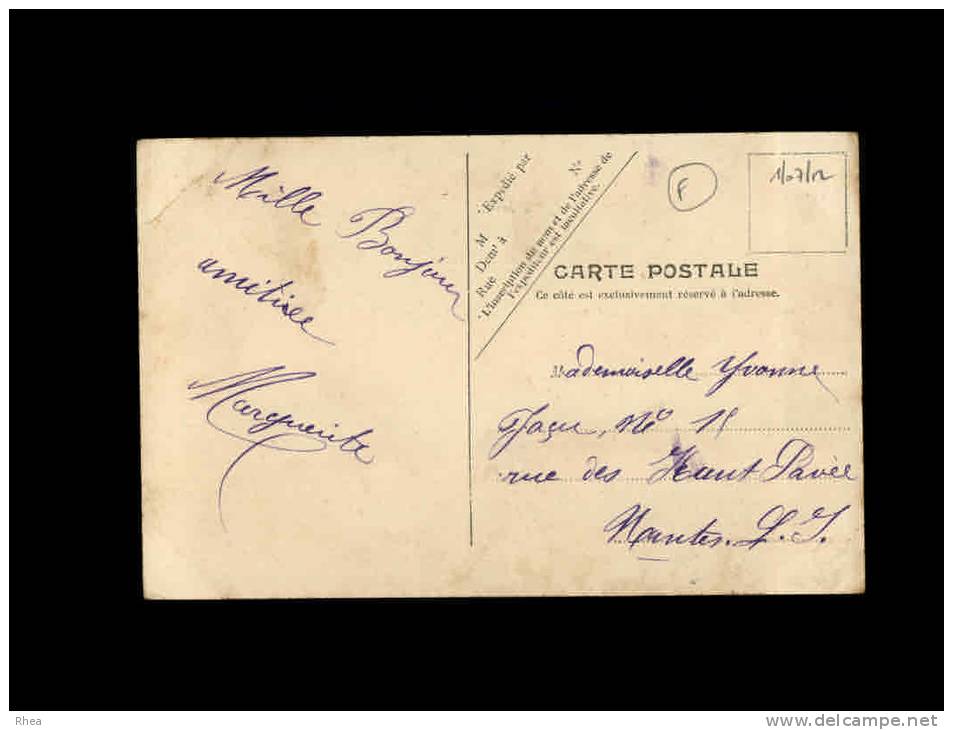 Mille
Bonjour
amitiée
Marguerite
Expédié par
M
Demt à
Rue
No
L'inscription du nom et de l'adresse de
l'expéditeur est facultative.
F
1/07/12
CARTE POSTALE
Ce côté est exclusivement réservé à l'adresse.
Mademoiselle Yvonne
No 15
rue des Haut Pavée
Nantes. L. I.
Rhea
www.delcampe.net